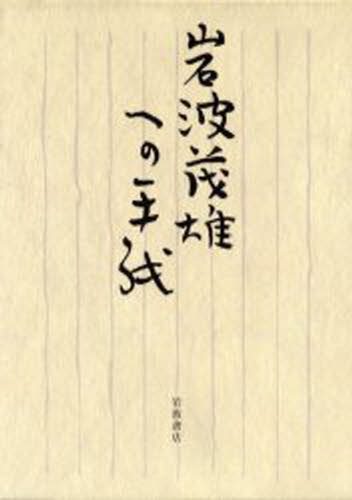 岩波茂雄
への手紙
岩波書店